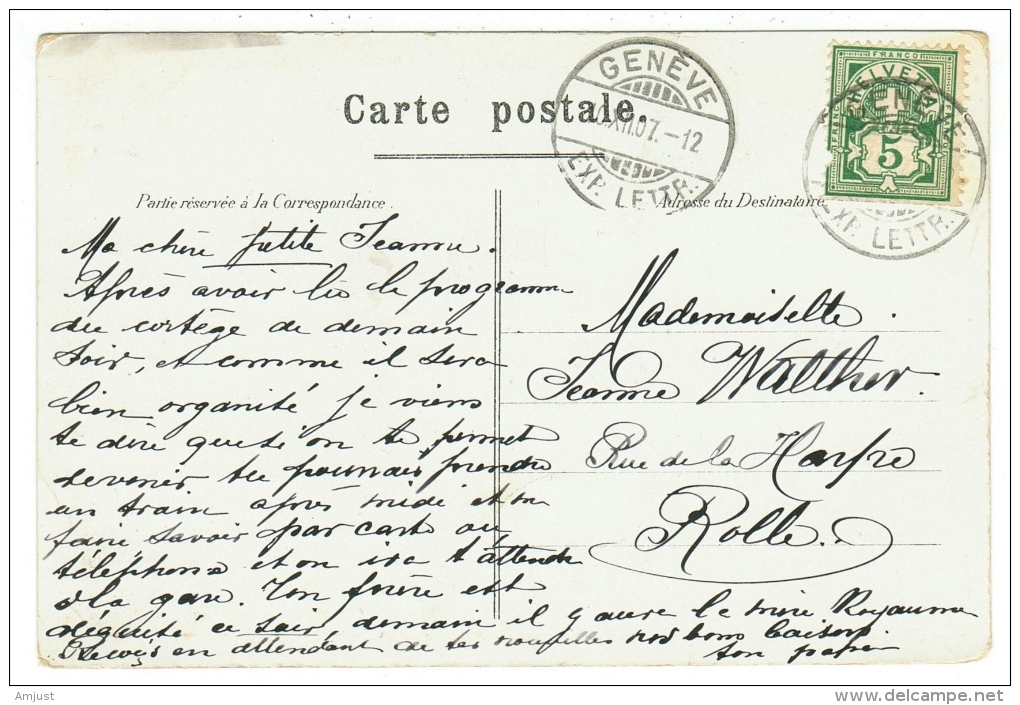 Carte postale.
GENÈVE
XII.07.-12
EXP. LETTR.
FRANCO
HELVETIA
5
EXP. LETTR.
Partie réservée à la Correspondance.
Adresse du Destinataire
Ma chère petite Jeanne.
Après avoir lu le programme
du cortège de demain
soir, et comme il sera
bien organisé je viens
te dire que si on te permet
de venir tu pourrais prendre
un train après midi et me
faire savoir par carte ou
téléphone et on ira t'attendre
à la gare. Ton frère est
déguisé ce soir demain il y aura le Royaume
Reçois en attendant de tes nouvelles nos bons baisers
ton papa
Mademoiselle
Jeanne Walther.
Rue de la Harpe
Rolle.
Amjust
www.delcampe.net